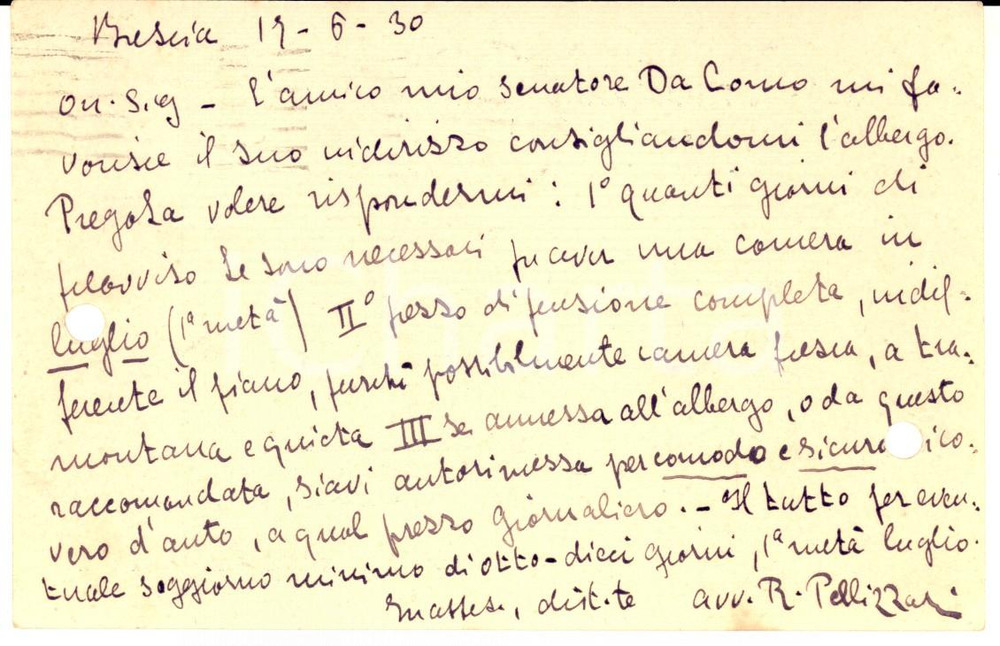 Brescia 19-6-30
On. Sig - L'amico mio senatore Da Como mi fa-
vorisce il suo indirizzo consigliandomi l'albergo.
PregoLa volere rispondermi: 1° quanti giorni di
preavviso Le sono necessari per aver una camera in
luglio (1ª metà) II° prezzo di pensione completa, indif-
ferente il piano, purché possibilmente camera fresca, a tra-
montana e quieta III se annessa all'albergo, o da questo
raccomandata, siavi autorimessa per comodo e sicuro rico-
vero d'auto, a qual prezzo giornaliero. - Il tutto per even-
tuale soggiorno minimo di otto-dieci giorni, 1ª metà luglio.
avv. R. Pellizzari